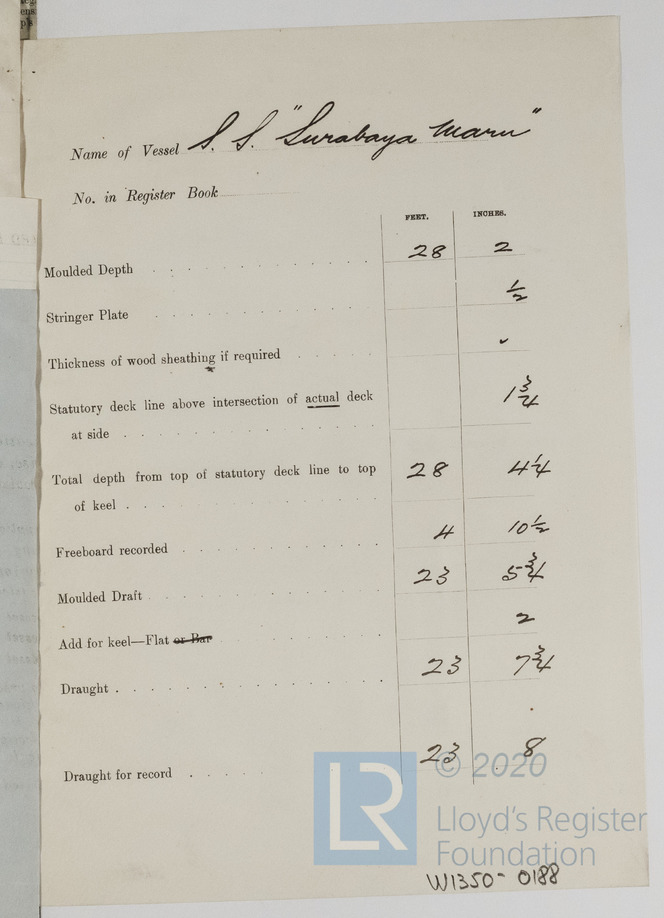 Name of Vessel S. S. "Surabaya Maru"
No. in Register Book
FEET. INCHES.
Moulded Depth 28 2
Stringer Plate 1/2
Thickness of wood sheathing if required ✓
Statutory deck line above intersection of actual deck 1 3/4
at side
Total depth from top of statutory deck line to top 28 4 1/4
of keel
Freeboard recorded 4 10 1/2
Moulded Draft 23 5 3/4
Add for keel—Flat or Bar 2
Draught 23 7 3/4
Draught for record 23 8
LR © 2020
Lloyd's Register
Foundation
W1350-0188